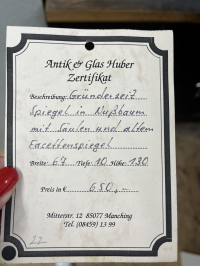 Antik & Glas Huber
Zertifikat
Beschreibung: Gründerzeit
Spiegel in Nußbaum
mit Säulen und altem
Facettenspiegel
Breite: 67 Tiefe: 10 Höhe: 130
Preis in € 650,-
Mitterstr. 12 85077 Manching
Tel. (08459) 13 99
22